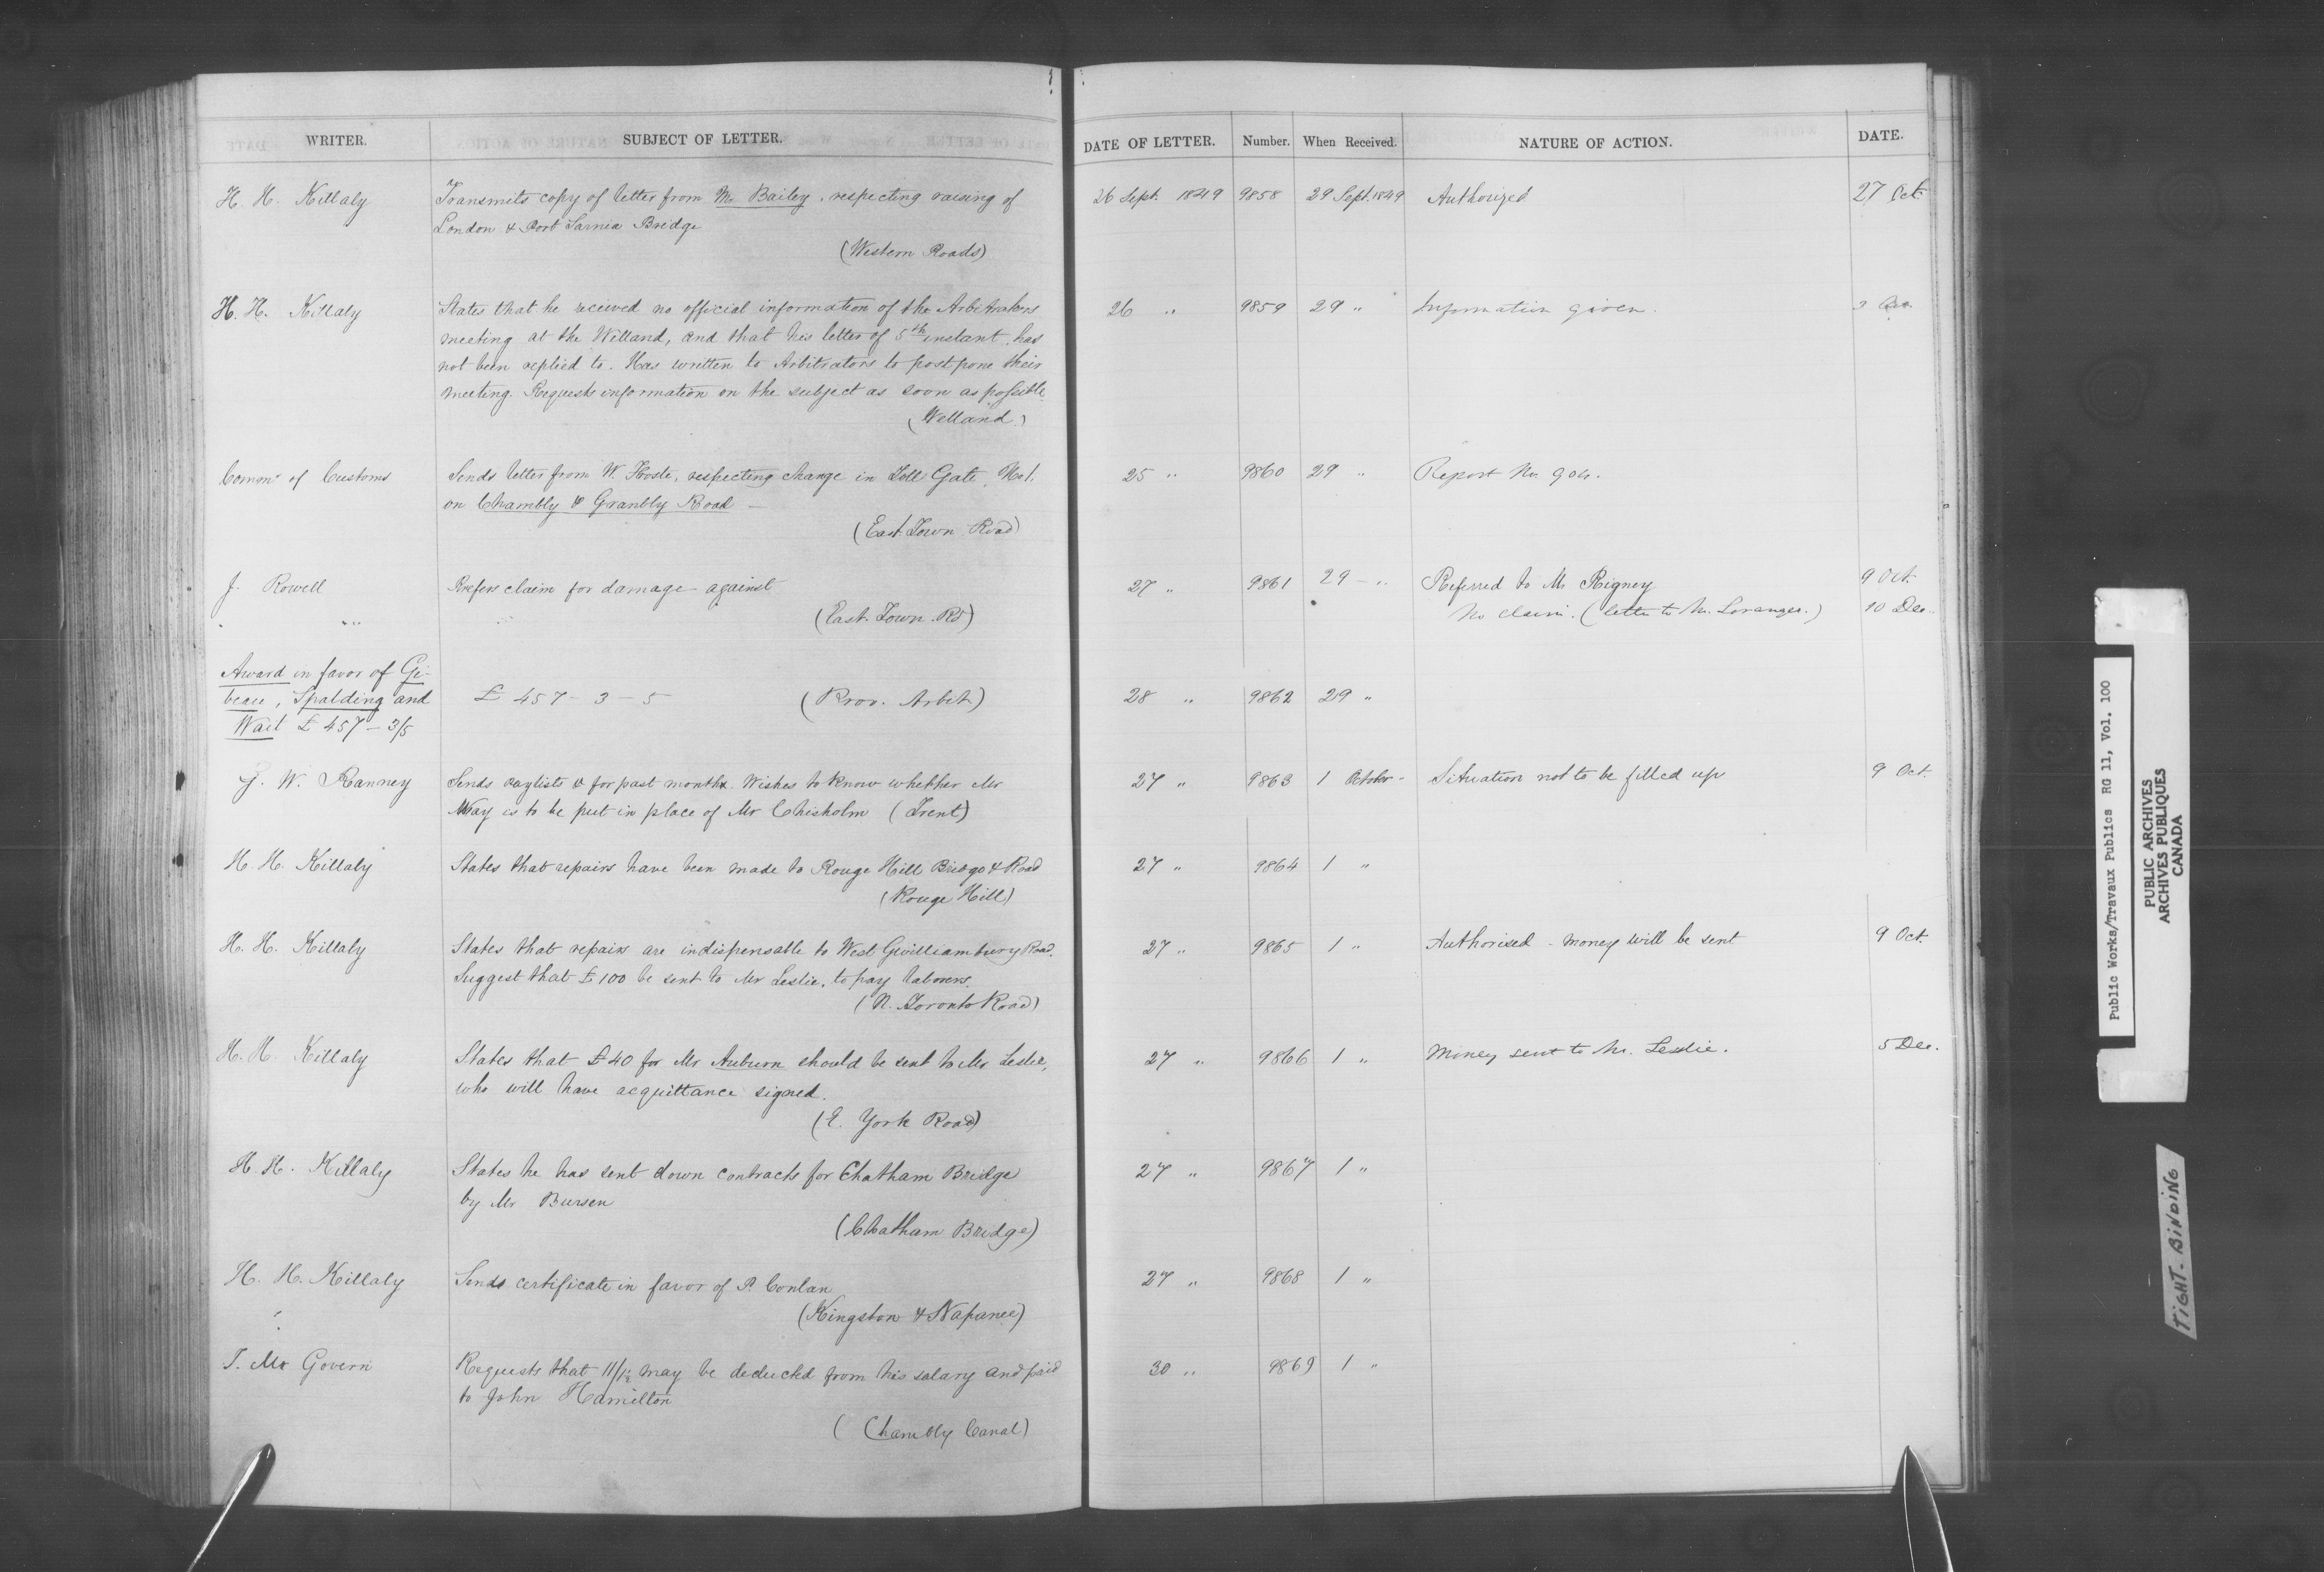 WRITER. SUBJECT OF LETTER. DATE OF LETTER. Number. When Received. NATURE OF ACTION. DATE.
H. H. Killaly Transmits copy of letter from Mr Bailey, respecting raising of 26 Sept. 1849 9858 29 Sept. 1849 Authorized 27 Oct.
London & Port Sarnia Bridge
(Western Roads)
H. H. Killaly States that he received no official information of the Arbitrators 26 " 9859 29 " Information given. 3
meeting at the Welland, and that his letter of 5th instant, has
not been replied to. Has written to Arbitrators to postpone their
meeting. Requests information on the subject as soon as possible
(Welland)
Commr of Customs Sends letter from W. respecting change in Toll Gate, No 1. 25 " 9860 29 " Report No. 904.
on Chambly & Granbly Road —
(East. Town. Road)
J. Rowell Prefers claim for damage against 27 " 9861 29 - " Referred to Mr Rigney 9 Oct.
" (East. Town. Rd) No claim. (letter to Mr. Loranger.) 10 Dec.
Award in favor of Gi-
beau, Spalding and £ 457 - 3 - 5 (Prov. Arbit.) 28 " 9862 29 "
Wait £ 457 - 3/5
J. W. Ranney Sends paylists & for past month. Wishes to know whether Mr 27 " 9863 1 October - Situation not to be filled up 9 Oct.
May is to be put in place of Mr Chisholm (Trent)
H. H. Killaly States that repairs have been made to Rouge Hill Bridge & Road 27 " 9864 1 "
(Rouge Hill)
H. H. Killaly States that repairs are indispensable to West Gwilliambury Road. 27 " 9865 1 " Authorised - money will be sent 9 Oct.
Suggest that £100 be sent to Mr Leslie, to pay laborers.
(N. Toronto Road)
H. H. Killaly States that £40 for Mr Auburn should be sent to Mr Leslie, 27 " 9866 1 " Money sent to Mr. Leslie. 5 Dec.
who will have acquittance signed.
(E. York Road)
H. H. Killaly States he has sent down contracts for Chatham Bridge 27 " 9867 1 "
by Mr Bursen
(Chatham Bridge)
H. H. Killaly Sends certificate in favor of P. Conlan 27 " 9868 1 "
(Kingston & Napanee)
T. Mc Govern Requests that 11/1½ may be deducted from his salary and paid 30 " 9869 1 "
to John Hamilton
(Chambly Canal)
Public Works/Travaux Publics RG 11, Vol. 100
PUBLIC ARCHIVES
ARCHIVES PUBLIQUES
CANADA
TIGHT-BINDING